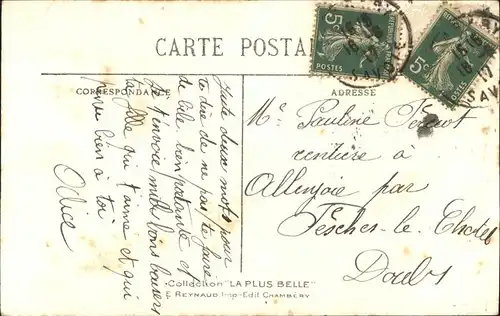 CARTE POSTALE
CORRESPONDANCE
ADRESSE
Juste deux mots pour
te dire de ne pas te faire
de bile, bien portante et
je t'envoie mille bons baisers
ta fille qui t'aime et qui
pense bien à toi
Odice
Me Pauline
rentière à
Allenjoie par
Fesches-le-Chatel
Doubs
5c
5c
Collection "LA PLUS BELLE"
E. REYNAUD, Imp.-Edit. CHAMBÉRY